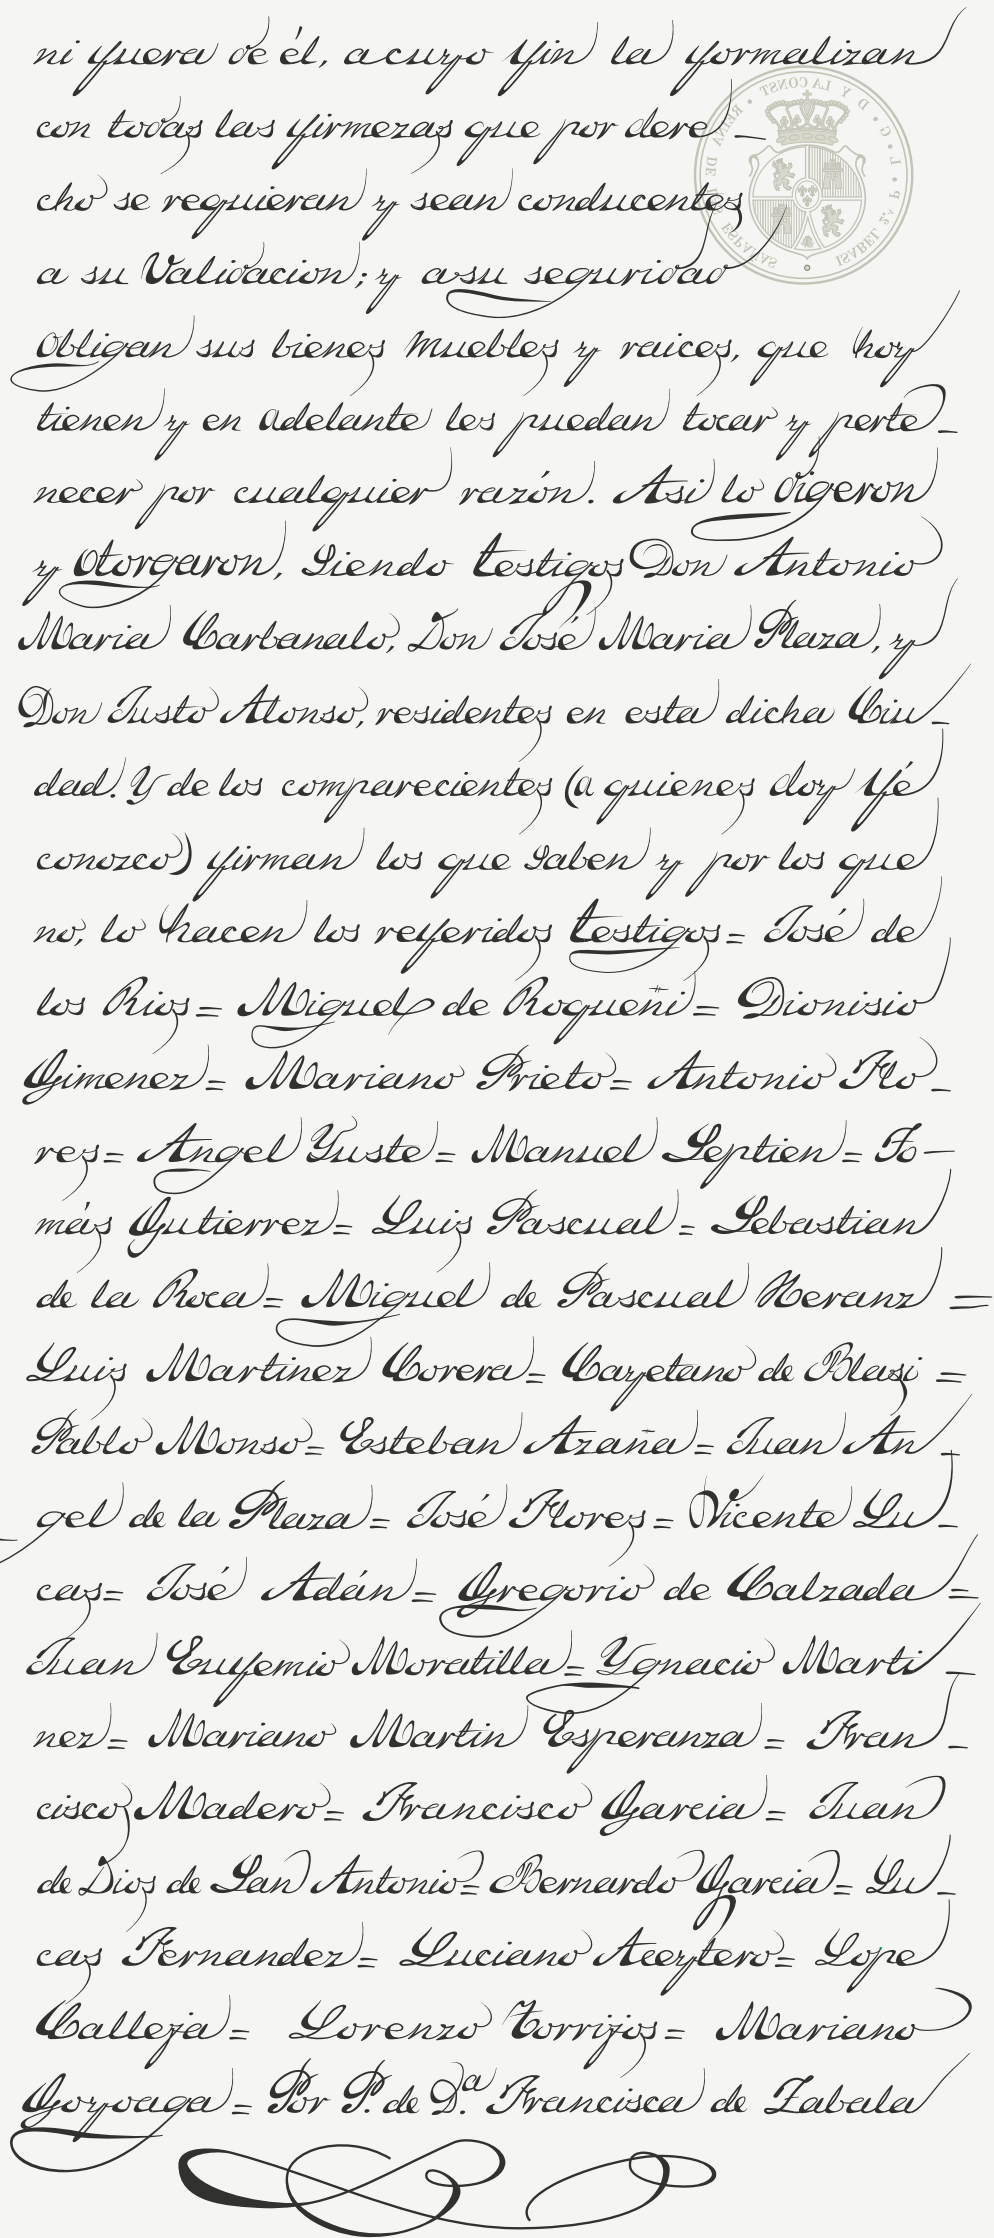 ni fuera de él, a cuyo fin la formalizan
con todas las firmezas que por dere_
cho se requieran y sean conducentes
a su Validacion; y a su seguridad
Obligan sus bienes muebles y raices, que hoy
tienen y en adelante les puedan tocar y perte_
necer por cualquier razón. Asi lo digeron
y Otorgaron, Siendo testigos Don Antonio
Maria Carbanalo, Don José Maria Plaza, y
Don Justo Alonso, residentes en esta dicha Ciu_
dad. Y de los comparecientes (a quienes doy fé
conozco) firman los que Saben y por los que
no, lo hacen los referidos testigos= José de
los Rios= Miguel de Roqueñi= Dionisio
Gimenez= Mariano Prieto= Antonio Flo_
res= Angel Yuste= Manuel Septien= To—
más Gutierrez= Luis Pascual= Sebastian
de la Roca= Miguel de Pascual Heranz =
Luis Martinez Corera= Cayetano de Blasi =
Pablo Monso= Esteban Azaña= Juan An_
gel de la Plaza= José Flores= Vicente Lu_
cas= José Adán= Gregorio de Calzada=
Juan Eufemio Moratilla= Ygnacio Marti_
nez= Mariano Martin Esperanza= Fran_
cisco Madero= Francisco Garcia= Juan
de Dios de San Antonio= Bernardo Garcia= Lu_
cas Fernandez= Luciano Aceytero= Lope
Calleja= Lorenzo Torrijos= Mariano
Goyoaga= Por P. de D.ª Francisca de Zabala
ISABEL 2ª P. L. G. D. Y LA CONST. REINA DE LAS ESPAÑAS